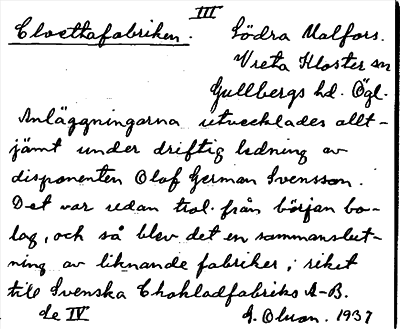 III
Cloettafabriken. Södra Malfors.
Vreta Kloster sn
Gullbergs hd. Ögl.
Anläggningarna utvecklades allt-
jämt under driftig ledning av
disponenten Olof German Svensson.
Det var redan tral. från början bo-
lag, och så blev det en sammanslut-
ning av liknande fabriker i riket
till Svenska Chokladfabriks A-B.
Se IV G. Olson. 1937